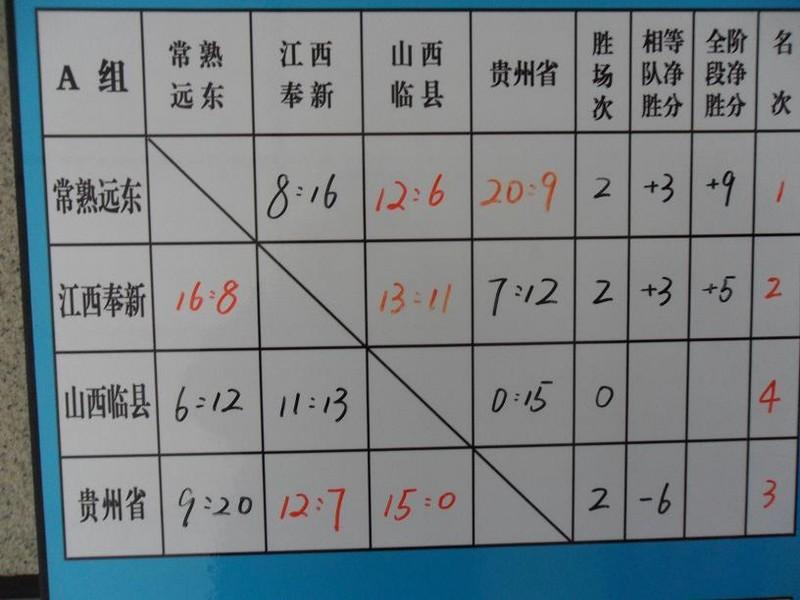 A 组 常熟远东 江西奉新 山西临县 贵州省 胜场次 相等队净胜分 全阶段净胜分 名次
常熟远东 8:16 12:6 20:9 2 +3 +9 1
江西奉新 16:8 13:11 7:12 2 +3 +5 2
山西临县 6:12 11:13 0:15 0 4
贵州省 9:20 12:7 15:0 2 -6 3